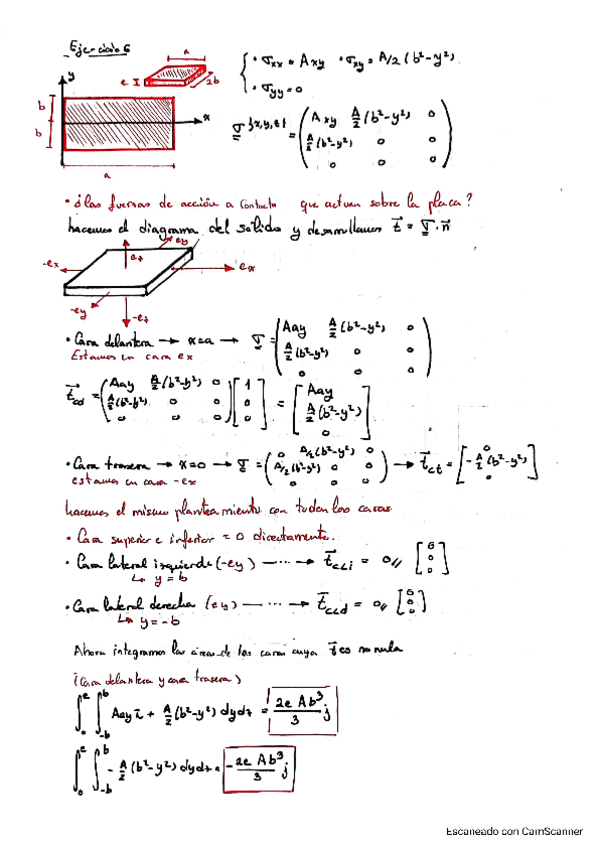 Ejercicio 6
a
e
2b
y
b
b
x
a
• σxx = Axy • σxy = A/2 (b²-y²)
• σyy = 0
σ {x,y,z} = ( Axy A/2 (b²-y²) 0
A/2 (b²-y²) 0 0
0 0 0 )
• ¿las fuerzas de acción a contacto que actuan sobre la placa?
hacemos el diagrama del sólido y desarrollamos t = σ · n
-ex
ez
ey
ex
-ey
-ez
• Cara delantera → x=a → σ = ( Aay A/2 (b²-y²) 0
Estamos en cara ex
A/2 (b²-y²) 0 0
0 0 0 )
tcd = ( Aay A/2 (b²-y²) 0
A/2 (b²-y²) 0 0
0 0 0 ) [ 1 0 0 ] = [ Aay
A/2 (b²-y²)
0 ]
• Cara trasera → x=0 → σ = ( 0 A/2 (b²-y²) 0
A/2 (b²-y²) 0 0
0 0 0 ) → tct = [ 0
-A/2 (b²-y²)
0 ]
estamos en cara -ex
hacemos el mismo planteamiento con todas las caras
• Cara superior e inferior = 0 directamente.
• Cara lateral izquierda (-ey) → ··· → tcli = 0// [ 0 0 0 ]
↳ y = b
• Cara lateral derecha (ey) → ··· → tccd = 0// [ 0 0 0 ]
↳ y = -b
Ahora integramos las areas de las caras cuya t es no nula
(Cara delantera y cara trasera)
∫₀ᵉ ∫₋ᵦᵇ Aay i + A/2 (b²-y²) dydz = 2e Ab³/3 j
∫₀ᵉ ∫₋ᵦᵇ -A/2 (b²-y²) dydz = -2e Ab³/3 j
Escaneado con CamScanner